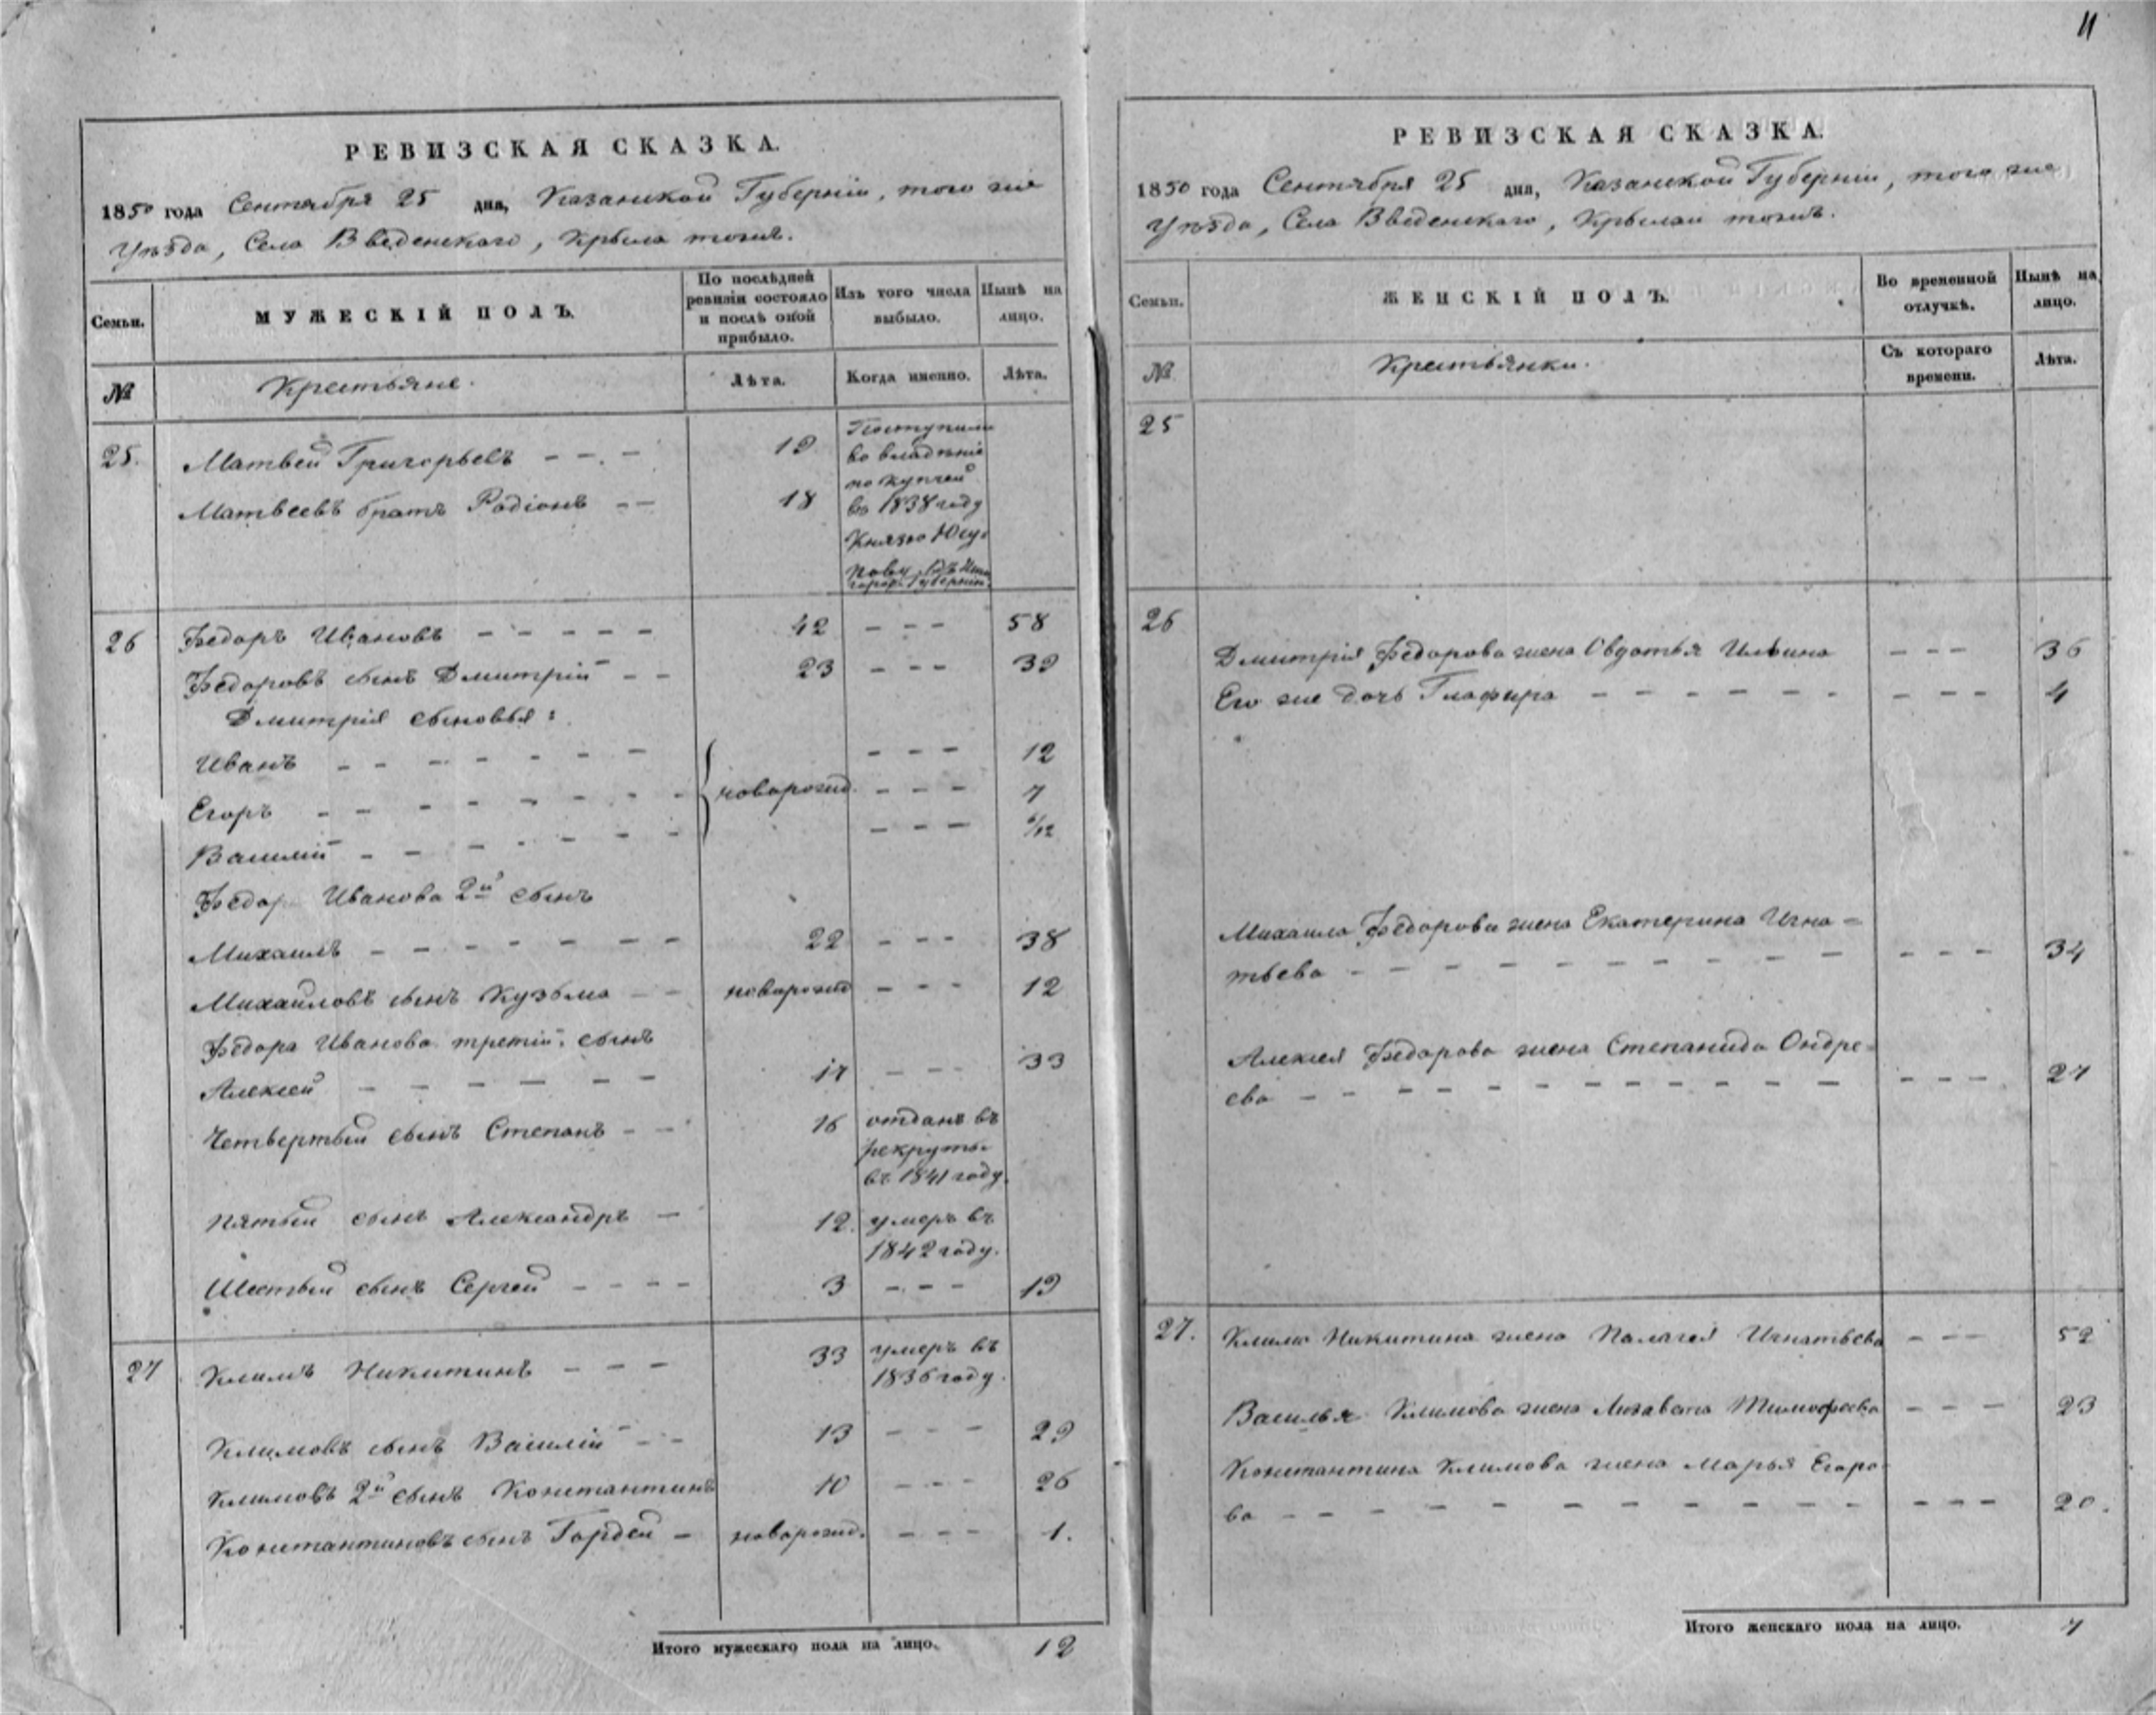 11
РЕВИЗСКАЯ СКАЗКА.
1850 года Сентября 25 дня, Казанской Губерніи, того же
Уѣзда, Села Введенскаго, Крыла тожъ.
Семьи.
МУЖЕСКІЙ ПОЛЪ.
По послѣдней ревизіи состояло и послѣ оной прибыло.
Изъ того числа выбыло.
Нынѣ на лицо.
№
Крестьяне.
Лѣта.
Когда именно.
Лѣта.
25. Матвей Григорьевъ - - - 19 Поступили
во владѣніе
по купчей
Матвеевъ братъ Родіонъ - - 18 въ 1838 году
Князю Юсу-
пову
Губерніи.
26 Ѳедоръ Ивановъ - - - - - 42 - - - 58
Ѳедоровъ сынъ Дмитрій - - 23 - - - 39
Дмитрія сыновья:
Иванъ - - - - - - - - - - 12
Егоръ - - - - - - - - новорожд. - - - 7
Василій - - - - - - - - - - 6/12
Ѳедор Иванова 2й сынъ
Михаилъ - - - - - - - 22 - - - 38
Михаиловъ сынъ Кузьма - - новорожд - - - 12
Ѳедора Иванова третій сынъ
Алексей - - - - - - 17 - - - 33
Четвертый сынъ Степанъ - - 16 отданъ въ
рекруты
въ 1841 году.
Пятый сынъ Александръ - 12. умеръ въ
1842 году.
Шестый сынъ Сергей - - - - 3 - - - 19
27 Климъ Никитинъ - - - 33 умеръ въ
1836 году.
Климовъ сынъ Василій - - 13 - - - 29
Климовъ 2й сынъ Константинъ 10 - - - 26
Константиновъ сынъ Гордей - новорожд. - - - 1.
Итого мужескаго пола на лицо. 12
РЕВИЗСКАЯ СКАЗКА.
1850 года Сентября 25 дня, Казанской Губерніи, того же
Уѣзда, Села Введенскаго, Крылаи тожъ.
Семьи.
ЖЕНСКІЙ ПОЛЪ.
Во временной отлучкѣ.
Нынѣ на лицо.
№
Крестьянки.
Съ котораго времени.
Лѣта.
25
26
Дмитрія Ѳедорова жена Овдотья Ильина - - - 36
Его же дочь Глафира - - - - - - - - - - 4
Михаила Ѳедорова жена Екатерина Игна=
тьева - - - - - - - - - - - - - 34
Алексея Ѳедорова жена Степанида Ондре=
ева - - - - - - - - - - - - - - 27
27. Клима Никитина жена Палагея Игнатьева - - - 52
Василья Климова жена Лизавета Тимофеева - - - 23
Константина Климова жена Марья Егоро-
ва - - - - - - - - - - - - - - - 20.
Итого женскаго пола на лицо. 7